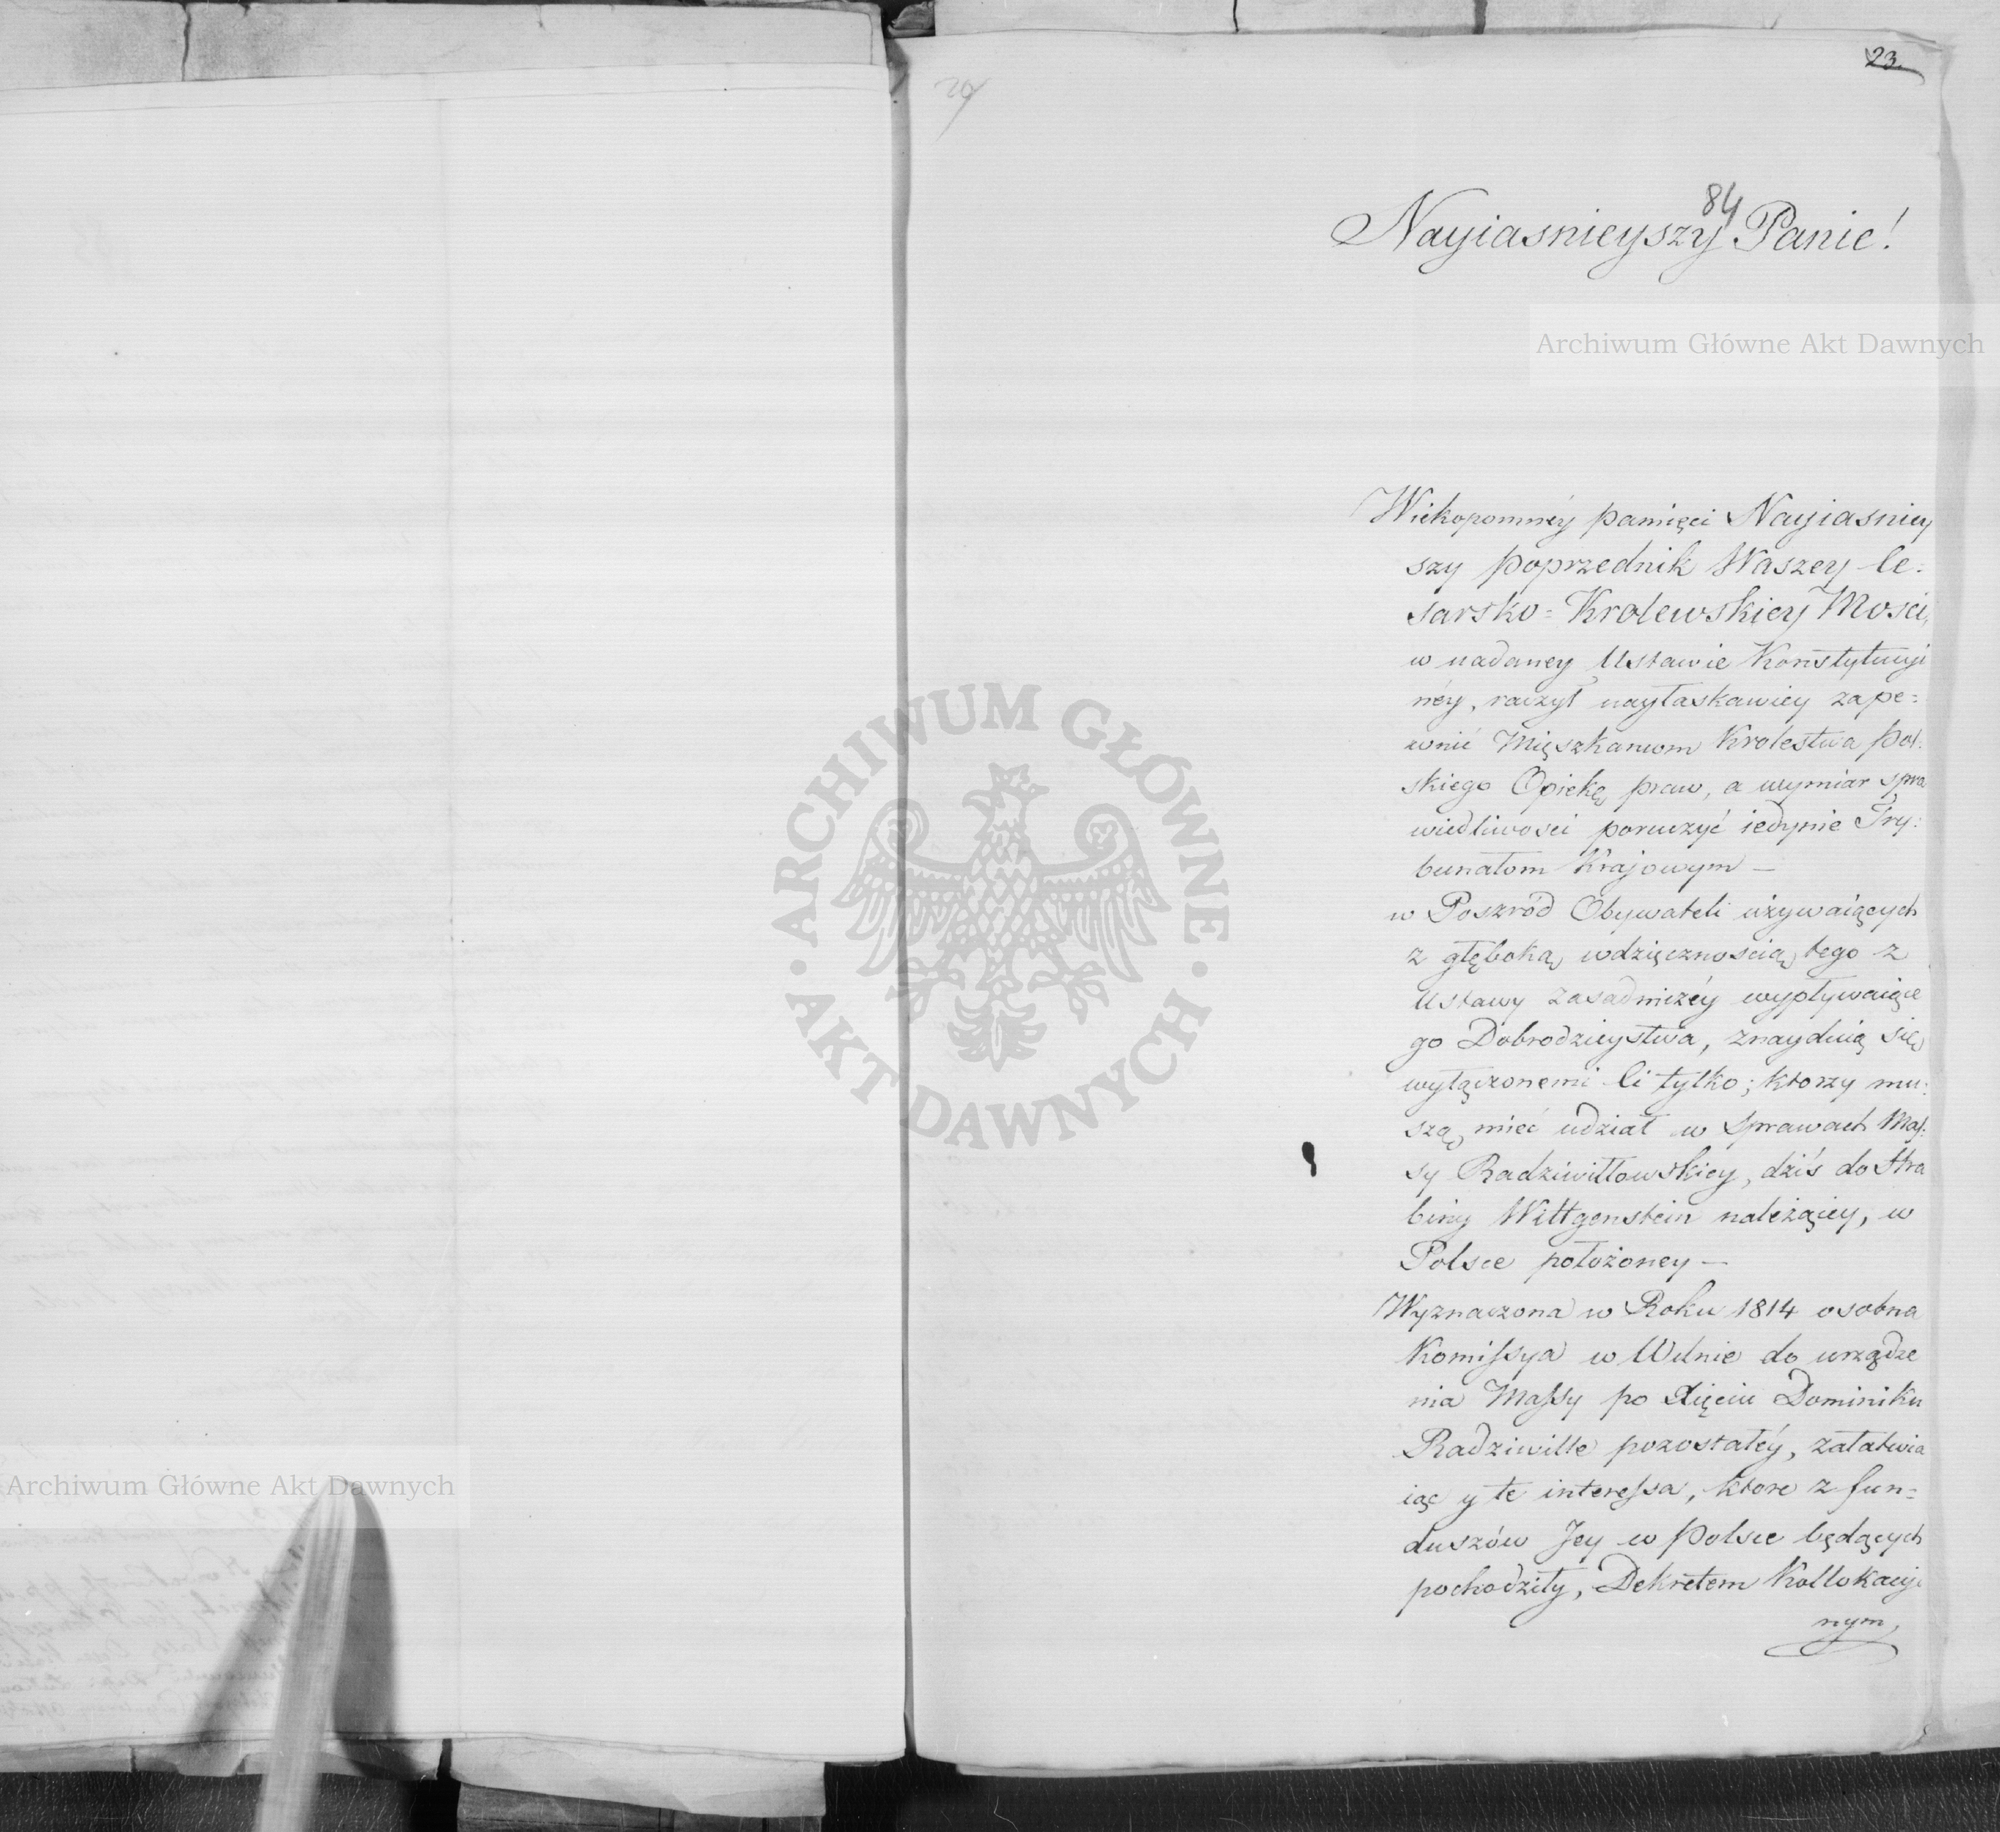 23.
84
Nayiasnieyszy Panie!
Archiwum Główne Akt Dawnych
Wiekopomnéy pamięci Nayiasniey
szy poprzednik Waszey Ce:
sarsko=Krolewskiey Mosci,
w nadaney Ustawie Konstytucyi
néy, raczył nayłaskawiey zape=
wnić Mięszkancom Krolestwa Pol:
skiego Opiekę praw, a wymiar spra
wiedliwosci poruczyć iedynie Try:
bunałom Krajowym —
w Poszród Obywateli używaiących
z głęboką wdzięcznoscią tego z
Ustawy zasadniczéy wypływaiące
go Dobrodzieystwa, znayduią się
wyłączonemi li tylko; ktorzy mu:
szą mieć udział w Sprawach Mas:
sy Radziwiłłowskiey, dziś do Hra
biny Wittgenstein należącey, w
Polsce położoney —
Wyznaczona w Roku 1814 osobna
Komissya w Wilnie do urządze
nia Massy po Xięciu Dominiku
Radziwille pozostałéy, załatwia
iąc y te interessa, ktore z fun=
duszów Jey w Polsce będących
pochodziły, Dekretem Kollokacyi
nym,
ARCHIWUM GŁÓWNE
AKT DAWNYCH
Archiwum Główne Akt Dawnych